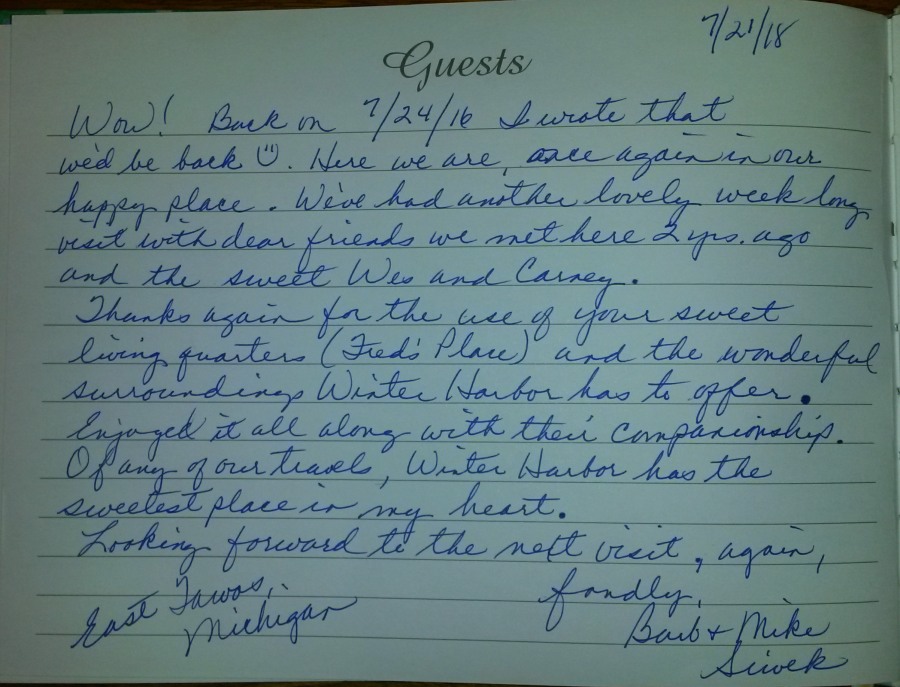 7/21/18
Guests
Wow! Back on 7/24/16 I wrote that
we'd be back ☺. Here we are, once again in our
happy place. We've had another lovely week long
visit with dear friends we met here 2 yrs. ago
and the sweet Wes and Carney.
Thanks again for the use of your sweet
living quarters (Fred's Place) and the wonderful
surroundings Winter Harbor has to offer.
Enjoyed it all along with their companionship.
Of any of our travels, Winter Harbor has the
sweetest place in my heart.
Looking forward to the next visit, again,
fondly,
East Tawas,
Michigan
Barb & Mike
Siwek